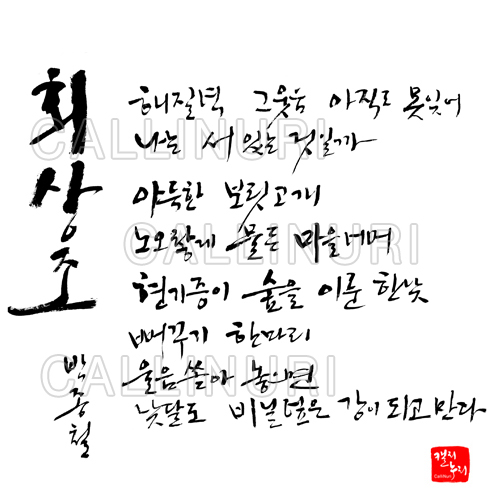 회상조
박종철
해질녘 그웃음 아직도 못잊어
나는 서 있는 것일까
아득한 보릿고개
노오랗게 물든 마을너머
현기증이 숲을 이룬 한낮
뻐꾸기 한마리
울음 쏟아 놓으면
낮달도 비늘 덮은 강이 되고 만다
CALLINURI
CALLINURI
CALLINURI
캘리누리
CalliNuri